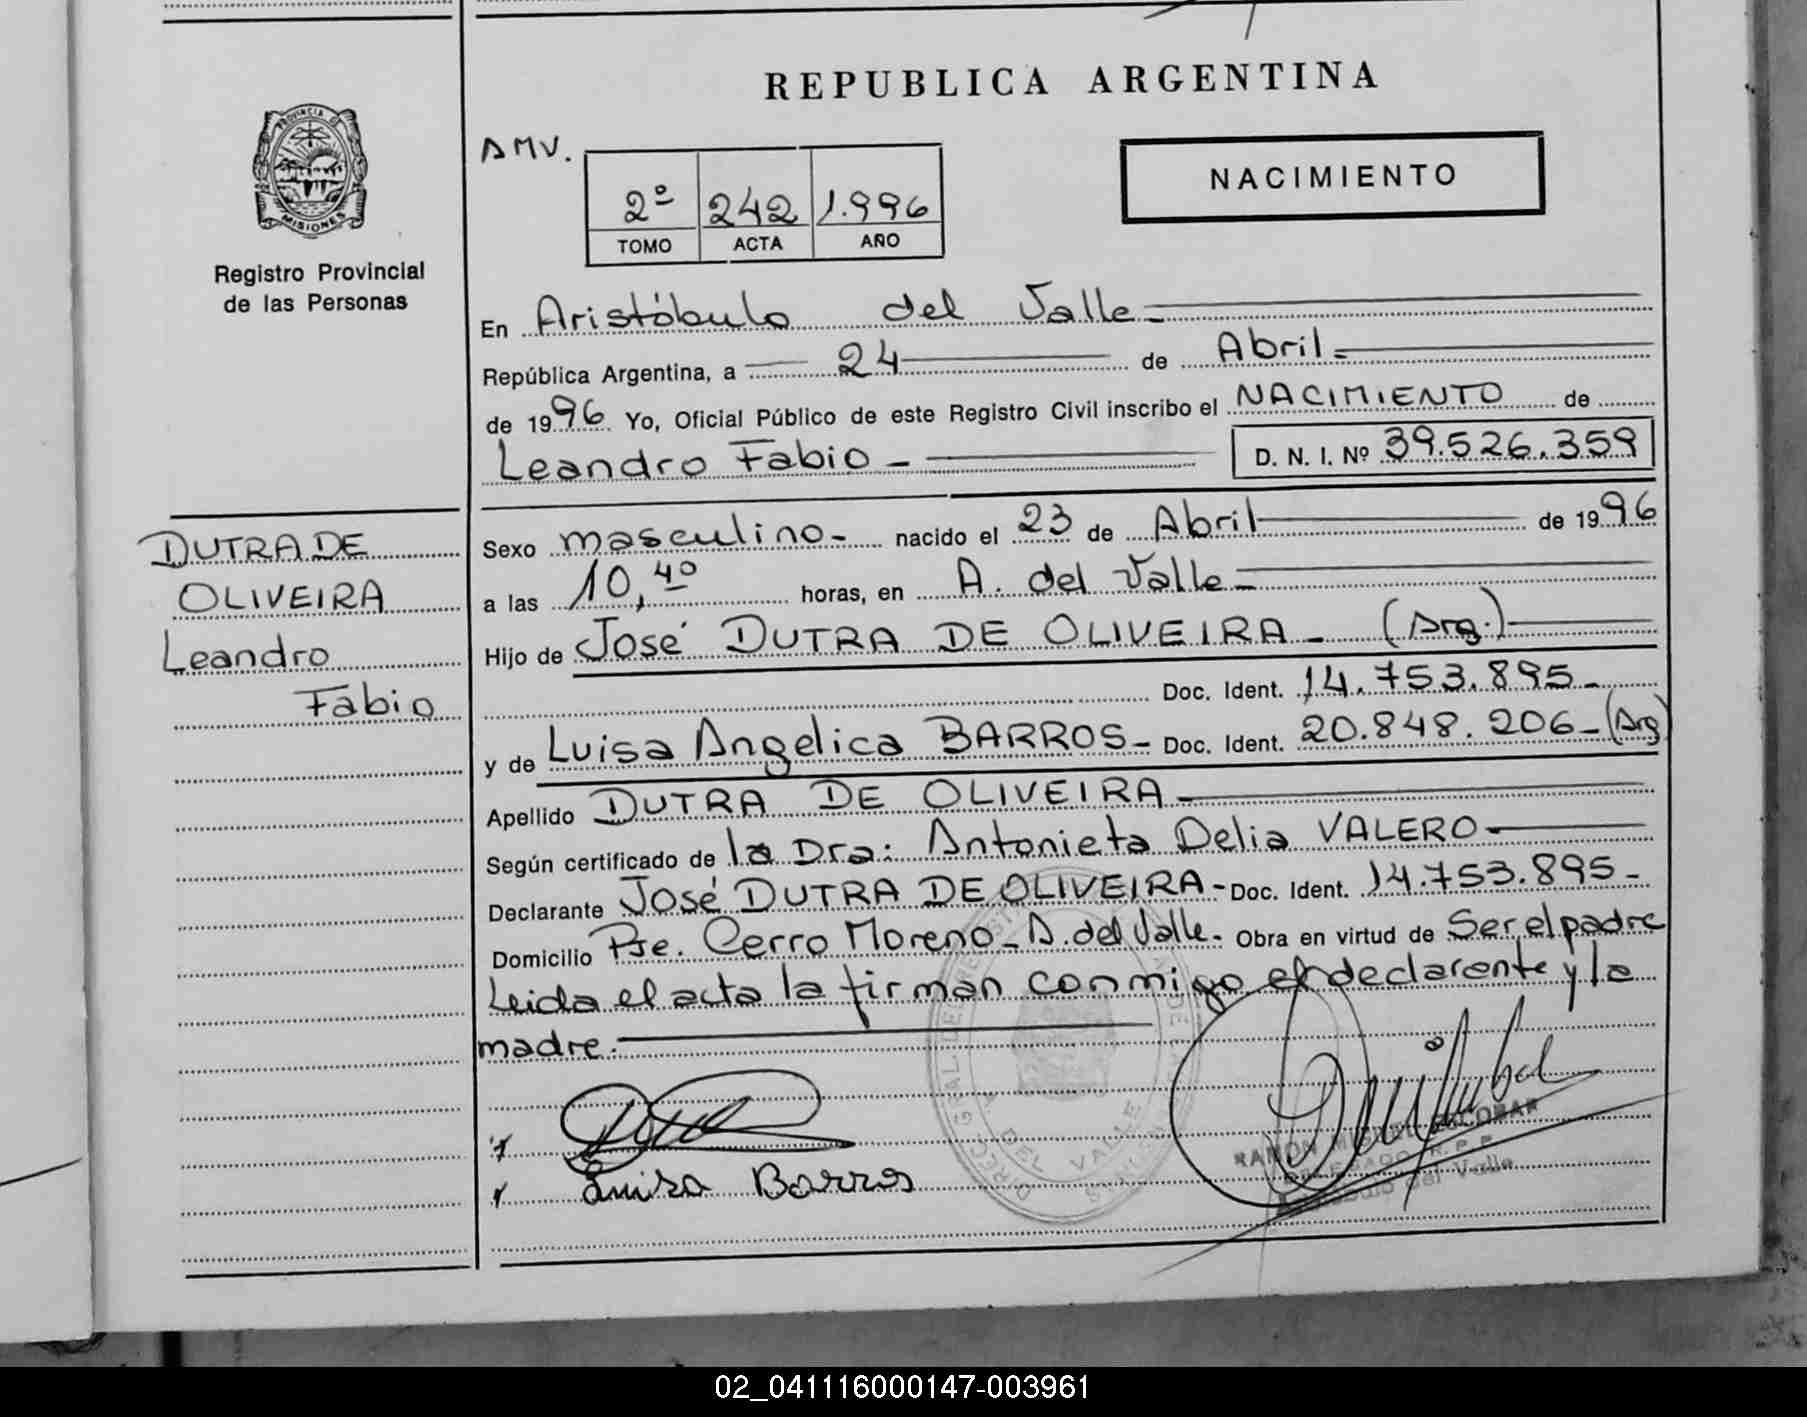 REPUBLICA ARGENTINA
PROVINCIA DE
MISIONES
Registro Provincial
de las Personas
AMV.
2º 242 1.996
TOMO ACTA AÑO
NACIMIENTO
En Aristóbulo del Valle
República Argentina, a 24 de Abril
de 1996 Yo, Oficial Público de este Registro Civil inscribo el NACIMIENTO de
Leandro Fabio D. N. I. Nº 39.526.359
DUTRA DE
OLIVEIRA
Leandro
Fabio
Sexo masculino nacido el 23 de Abril de 1996
a las 10,40 horas, en A. del Valle
Hijo de José DUTRA DE OLIVEIRA (Arg.)
Doc. Ident. 14.753.895
y de Luisa Angelica BARROS Doc. Ident. 20.848.206 (Arg)
Apellido DUTRA DE OLIVEIRA
Según certificado de la Dra: Antonieta Delia VALERO
Declarante José DUTRA DE OLIVEIRA - Doc. Ident. 14.753.895
Domicilio Pje. Cerro Moreno - A. del Valle. Obra en virtud de Ser el padre
Leida el acta la firman conmigo el declarante y la
madre.
Luisa Barros
RAMON MIGUEL ESCOBAR
DELEGADO R.P.P.
del Valle
DEL VALLE
02_041116000147-003961